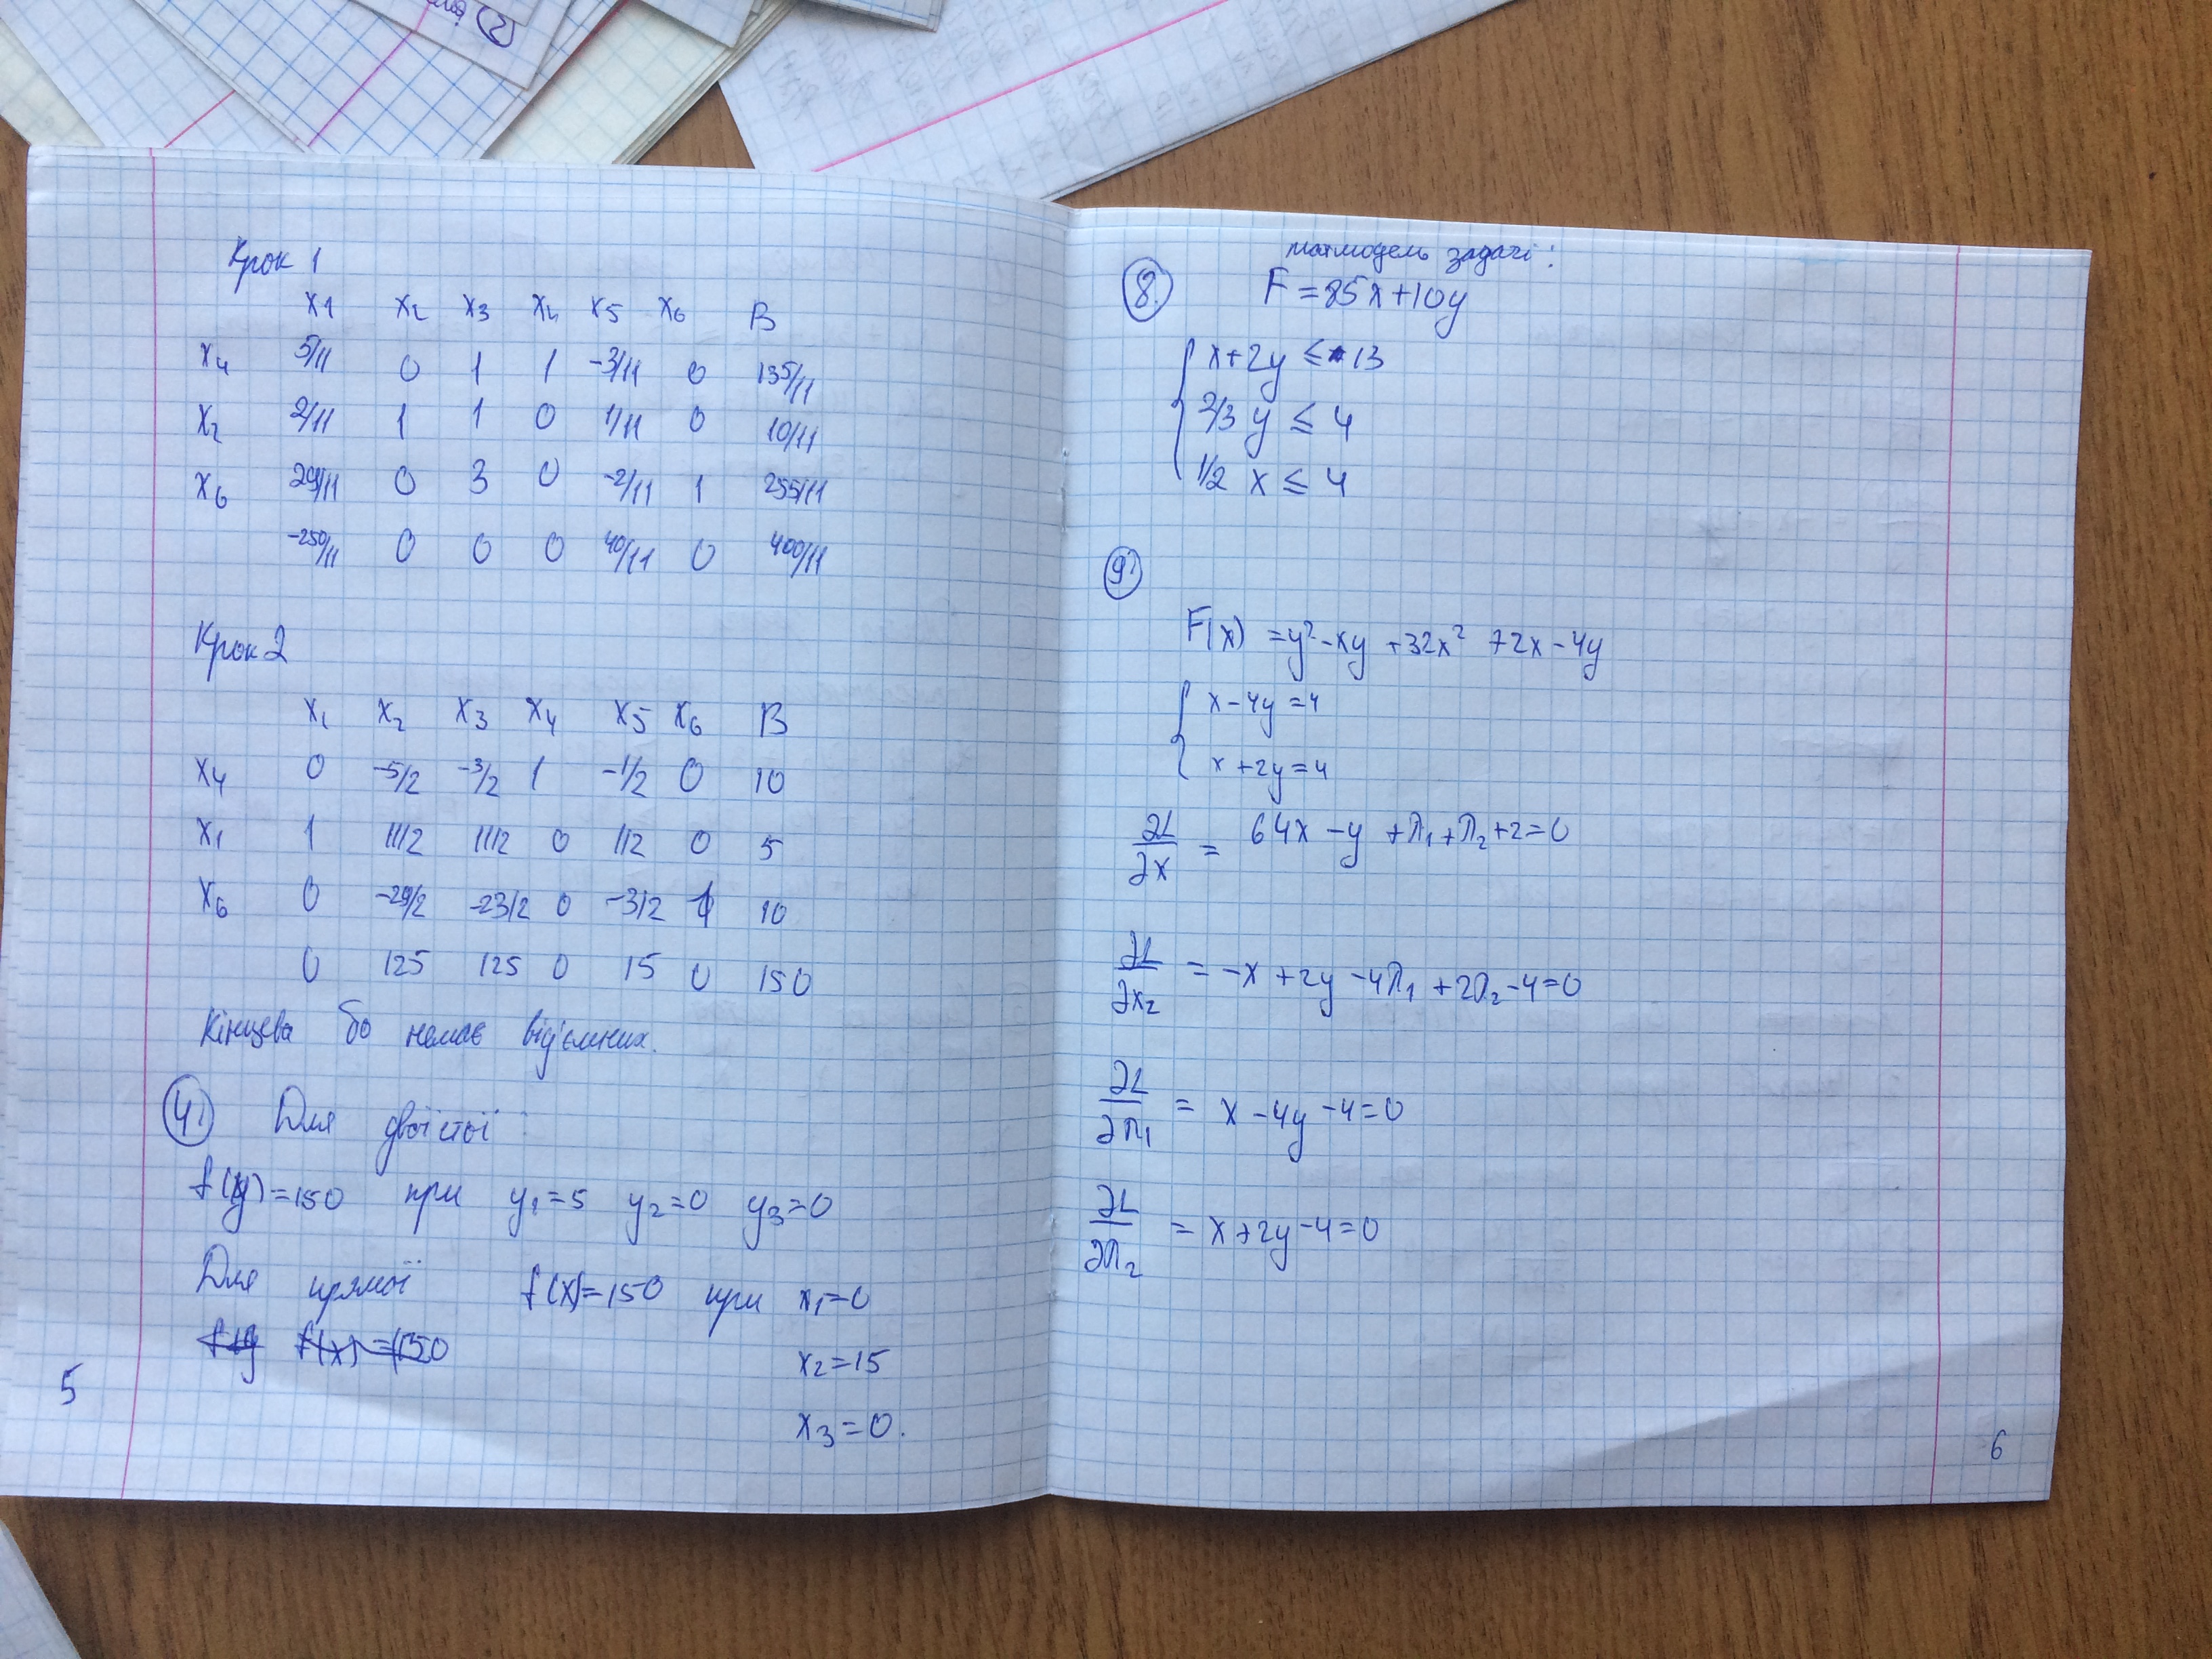 Крок 1
x1 x2 x3 x4 x5 x6 B
x4 5/11 0 1 1 -3/11 0 135/11
x2 2/11 1 1 0 1/11 0 10/11
x6 29/11 0 3 0 -2/11 1 255/11
-250/11 0 0 0 40/11 0 400/11
Крок 2
x1 x2 x3 x4 x5 x6 B
x4 0 -5/2 -3/2 1 -1/2 0 10
x1 1 11/2 11/2 0 1/2 0 5
x6 0 -29/2 -23/2 0 -3/2 1 10
0 125 125 0 15 0 150
Кінцева бо немає від'ємних.
4) Для двоїстої:
f(y)=150 при y1=5 y2=0 y3=0
Для прямої f(x)=150 при x1=0
f(x)=150
x2=15
x3=0.
5
матмодель задачі:
8. F=85x+10y
x+2y≤13
2/3 y ≤ 4
1/2 x ≤ 4
9)
F(x) =y²-xy +32x² +2x-4y
x-4y=4
x+2y=4
∂L/∂x = 64x-y+λ1+λ2+2=0
∂L/∂x2 = -x+2y-4λ1+2λ2-4=0
∂L/∂λ1 = x-4y-4=0
∂L/∂λ2 = x+2y-4=0
6